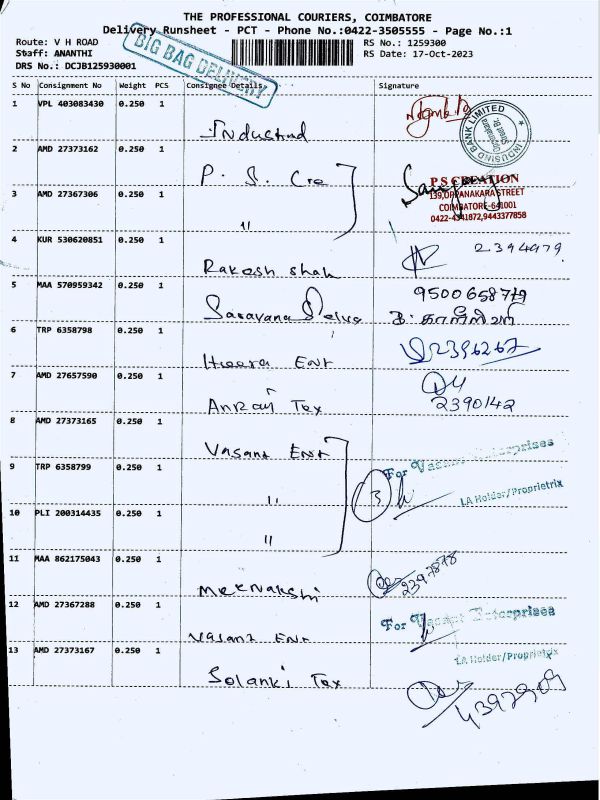 THE PROFESSIONAL COURIERS, COIMBATORE
Delivery Runsheet - PCT - Phone No.:0422-3505555 - Page No.:1
Route: V H ROAD
RS No.: 1259300
Staff: ANANTHI
RS Date: 17-Oct-2023
DRS No.: DCJB125930001
BIG BAG DELIVERY
S No Consignment No Weight PCS Consignee Details Signature
1 VPL 403083430 0.250 1
Indusind
INDUSIND BANK LIMITED
2 AMD 27373162 0.250 1
P. S. Cre
P S CREATION
139, OPPANAKARA STREET
COIMBATORE-641001
0422-4341872,9443377858
3 AMD 27367306 0.250 1
"
4 KUR 530620851 0.250 1
Rakesh Shah
2394979
5 MAA 570959342 0.250 1
Saravana Selva
9500658779
6 TRP 6358798 0.250 1
Heera Ent
2396267
7 AMD 27657590 0.250 1
Tex
2390142
8 AMD 27373165 0.250 1
Vasant Ent
9 TRP 6358799 0.250 1
"
3
For Vasant Enterprises
LA Holder/Proprietrix
10 PLI 200314435 0.250 1
"
11 MAA 862175043 0.250 1
Meenakshi
2397878
12 AMD 27367288 0.250 1
Vasant Ent
For Vasant Enterprises
LA Holder/Proprietrix
13 AMD 27373167 0.250 1
Solanki Tex
4392909